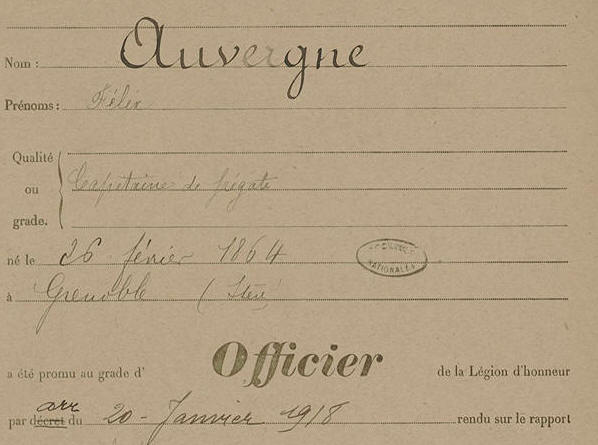 Nom : Auvergne
Prénoms : Félix
Qualité
ou
grade.
Capitaine de frégate
né le 26 février 1864
ARCHIVES
NATIONALES
à Grenoble (Isère)
a été promu au grade d' Officier de la Légion d'honneur
arr
par décret du 20 - Janvier 1918 rendu sur le rapport